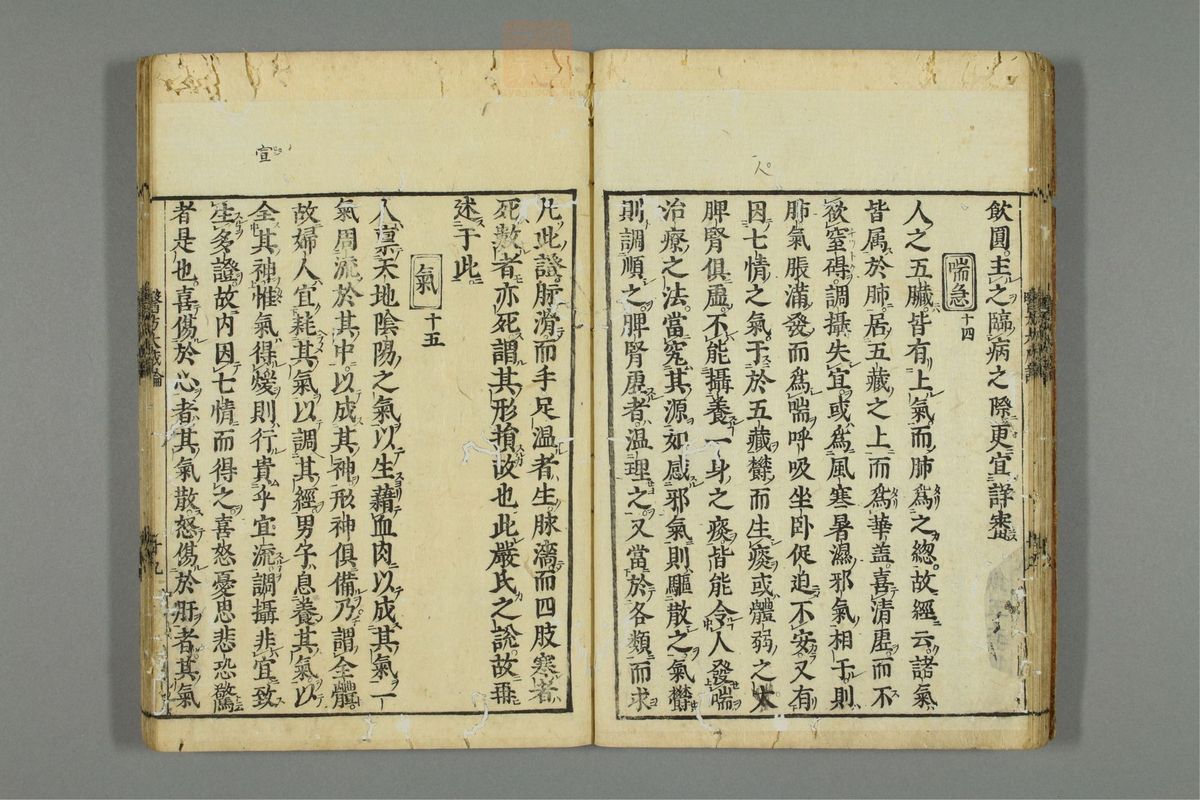 飲圓主之臨病之際更宜詳審
喘急 十四
人之五臟皆有上氣而肺爲之緫故經云諸氣
皆属於肺居五藏之上而爲華盖喜清虛而不
欲窒碍調攝失宜或爲風寒暑濕邪氣相干則
肺氣脹滿發而爲喘呼吸坐卧促迫不安又有
因七情之氣于於五藏欝而生痰或體弱之人
脾腎俱虛不能攝養一身之痰皆能令人發喘
治療之法當究其源如感邪氣則驅散之氣欝
則調順之脾腎虛者温理之又當於各類而求
凡此證脉滑而手足温者生脉濇而四肢寒者
死數者亦死謂其形損故也此嚴氏之說故再
述于此
氣 十五
人禀天地陰陽之氣以生藉血肉以成其氣一
氣周流於其中以成其神形神俱備乃謂全體
故婦人宜耗其氣以調其經男子息養其氣以
全其神惟氣得煖則行貴乎宜流調攝非宜致
生多證故内因七情而得之喜怒憂思悲恐驚
者是也喜傷於心者其氣散怒傷於肝者其氣
醫方大成論
宣
人